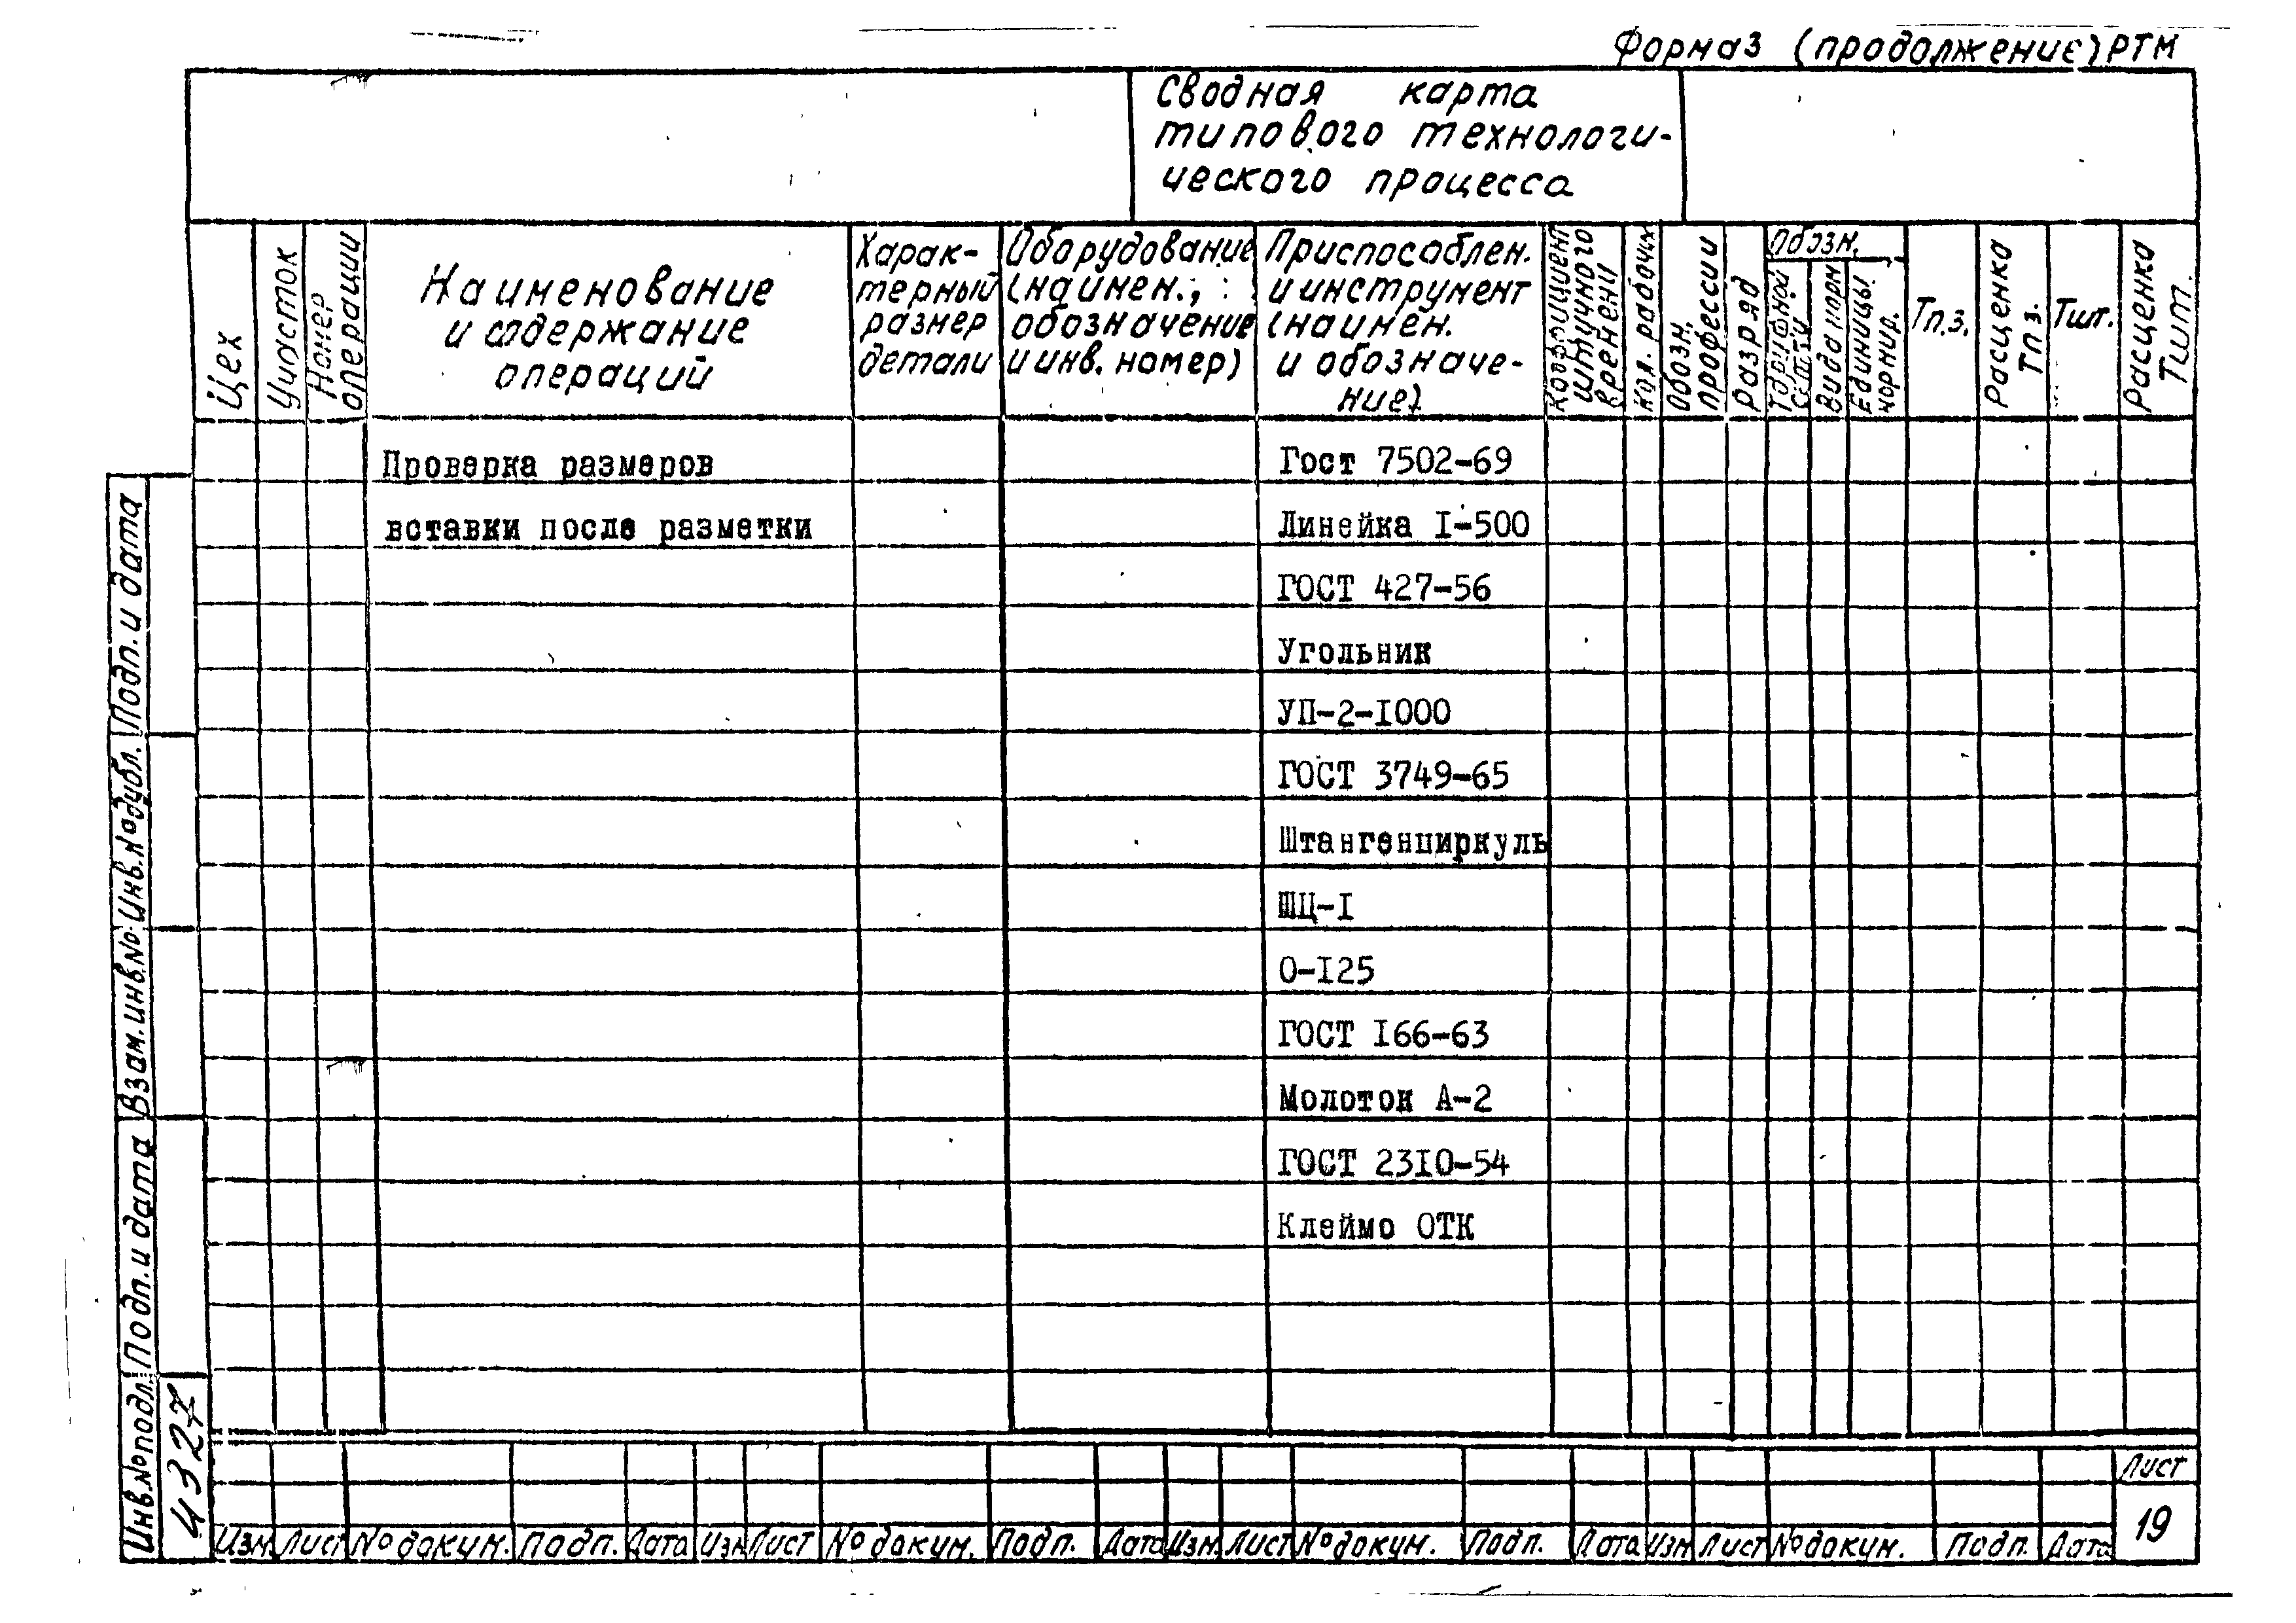 Форма3 (продолжение) РТМ
Сводная карта
типового технологи-
ческого процесса
Цех
Участок
Номер
операции
Наименование
и содержание
операций
Харак-
терный
размер
детали
Оборудование
(наимен.,
обозначение
и инв. номер)
Приспособлен.
и инструмент
(наимен.
и обозначе-
ние)
Коэффициент
штучного
времени
Кол. рабочих
Обозн.
профессии
Разряд
Обозн.
Тарифной
сетки
Вида норм
Единицы
нормир.
Тп.з.
Расценка
Тп.з.
Тшт.
Расценка
Тшт.
Проверка размеров
вставки после разметки
Гост 7502-69
Линейка I-500
ГОСТ 427-56
Угольник
УП-2-I000
ГОСТ 3749-65
Штангенциркуль
ШЦ-I
0-I25
ГОСТ I66-63
Молоток А-2
ГОСТ 23I0-54
Клеймо ОТК
Подп. и дата
Инв.№дубл.
Взам.инв.№
Подп. и дата
Инв.№подл.
4327
Изм. Лист №докум. подп. Дата Изм Лист №докум. Подп. Дата Изм. Лист №докум. Подп. Дата Изм Лист №докум. Подп. Дата
Лист
19